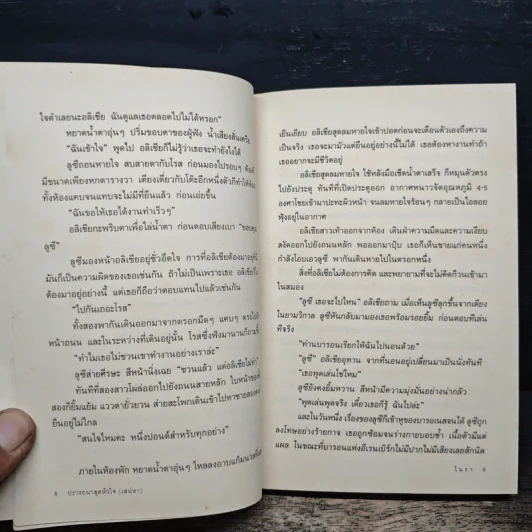 ใจดำเลยนะอลิเซีย ฉันดูแลเธอตลอดไปไม่ได้หรอก"
หยาดน้ำตาอุ่นๆ ปริ่มขอบตาของผู้ฟัง น้ำเสียงสั่นเครือ
"ฉันเข้าใจ" พูดไป อลิเซียก็ไม่รู้ว่าเธอจะทำยังไงได้
ลูซีถอนหายใจ สบสายตากับโรส ก่อนมองไปรอบๆ ห้องที่
มีขนาดเพียงหกตารางวา เตียงเดี่ยวกับโต๊ะอีกหนึ่งตัวก็ทำให้
ทั้งห้องแคบจนแทบจะไม่มีที่ยืนแล้ว ก่อนเอ่ยขึ้น
"ฉันขอให้เธอได้งานทำเร็วๆ"
อลิเซียกะพริบตาเพื่อไล่น้ำตา ก่อนตอบเสียงเบา "ขอบคุณ
ลูซี"
ลูซีมองหน้าอลิเซียอยู่ชั่วอึดใจ การที่อลิเซียต้องมาอยู่
มันก็เป็นความผิดของเธอเช่นกัน ถ้าไม่เป็นเพราะเธอ อลิเซียก็
ต้องมาอยู่อย่างนี้ แต่เธอก็ถือว่าตอบแทนไปแล้วเช่นกัน
"ไปกันเถอะโรส"
ทั้งสองพากันเดินออกมาจากตรอกมืดๆ แคบๆ ตรงไป
หน้าถนน และในระหว่างที่เดินอยู่นั้น โรสซึ่งฟังมานานก็ถามขึ้น
"ทำไมเธอไม่ชวนเขาทำงานอย่างเราล่ะ"
ลูซีส่ายศีรษะ สีหน้านิ่งเฉย "ชวนแล้ว แต่อลิเซียไม่ทำ"
ทันทีที่สองสาวโผล่ออกไปยังถนนสายหลัก ใบหน้าของ
สองก็ยิ้มแย้ม แววตายั่วยวน ส่ายสะโพกเดินเข้าไปหาชายสอง
ยืนอยู่ไม่ไกล
"สนใจไหมคะ หนึ่งปอนด์สำหรับทุกอย่าง"
ภายในห้องพัก หยาดน้ำตาอุ่นๆ ไหลลงอาบแก้มนวล
8 ปรารถนาสุดหัวใจ (เสน่หา)
เย็นเยียบ อลิเซียสูดลมหายใจเข้าปอดก่อนจะเตือนตัวเองถึงความ
เป็นจริง เธอจะมามัวแต่ยืนอยู่อย่างนี้ไม่ได้ เธอต้องหางานทำถ้า
เธออยากจะมีชีวิตอยู่
อลิเซียสูดลมหายใจ ใช้หลังมือเช็ดน้ำตาเสร็จ ก็หมุนตัวตรง
ไปยังประตู ทันทีที่เปิดประตูออก อากาศหนาวจัดอุณหภูมิ 4-5
องศาโชยเข้ามาปะทะผิวหน้า จนลมหายใจร้อนๆ กลายเป็นไอลอย
ฟุ้งอยู่ในอากาศ
อลิเซียสาวเท้าออกจากห้อง เดินฝ่าความมืดและความเงียบ
สงัดออกไปยังถนนหลัก พอออกมาปุ๊บ เธอก็เห็นชายแก่คนหนึ่ง
กำลังโอบเอวลูซี พากันเดินหายไปในตรอกหนึ่ง
สิ่งที่อลิเซียไม่ต้องการคิด และพยายามที่จะไม่คิดก็วนเข้ามา
ในสมอง
"ลูซี เธอจะไปไหน" อลิเซียถาม เมื่อเห็นลูซีลุกขึ้นจากเตียง
ในยามวิกาล ลูซีหันกลับมามองเธอพร้อมรอยยิ้ม ก่อนตอบทีเล่น
ทีจริง
"ท่านบารอนเรียกให้ฉันไปนอนด้วย"
"ลูซี" อลิเซียอุทาน จากที่นอนอยู่เปลี่ยนมาเป็นนั่งทันที
"เธอพูดเล่นใช่ไหม"
ลูซียังคงยิ้มหวาน สีหน้ามีความมุ่งมั่นอย่างน่ากลัว
"พูดเล่นพูดจริง เดี๋ยวเธอก็รู้ ฉันไปล่ะ"
และในวันหนึ่ง เรื่องของลูซีก็เข้าหูของบารอนเนสจนได้ ลูซีถูก
ลงโทษอย่างร้ายกาจ เธอถูกซ้อมจนร่างกายบอบช้ำ เนื้อตัวมีแต่
แผล ในขณะที่บารอนแห่งอีเรนเบิร์กไม่มีปากไม่มีเสียงเลยสักนิด
ไมรา 9